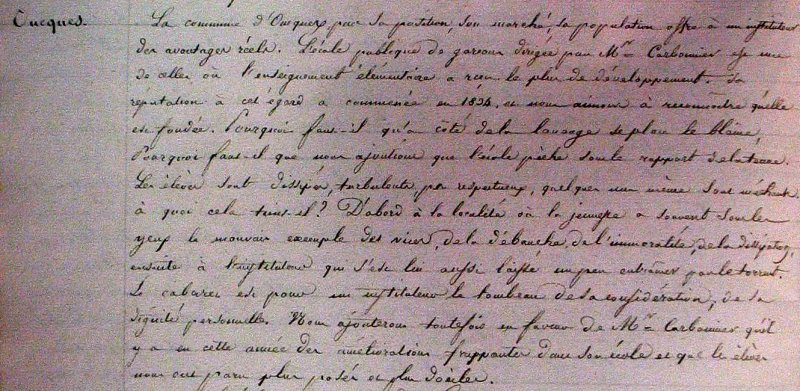 Cucques.
La commune d'Oucques par sa position, son marché, sa population offre à un instituteur
des avantages réels. L'école publique de garçons dirigée par Mr Carbonnier est une
de celles où l'enseignement élémentaire a reçu le plus de développement. Sa
réputation à cet égard a commencée en 1834, et nous aimons à reconnaître qu'elle
est fondée. Pourquoi faut-il qu'à côté de la louange se place le blâme,
Pourquoi faut-il que nous ajoutions que l'école pèche sous le rapport de la tenue.
Les élèves sont dissipés, turbulents, peu respectueux, quelques uns même sont méchants
à quoi cela tient-il? D'abord à la localité où la jeunesse a souvent sous les
yeux le mauvais exemple des vices, de la débauche, de l'immoralité, de la dissipation,
ensuite à l'instituteur qui s'est lui aussi laissé un peu entraîner par le torrent.
Le cabaret est pour un instituteur le tombeau de sa considération, de sa
dignité personnelle. Nous ajouterons toutefois en faveur de Mr Carbonnier qu'il
y a eu cette année des améliorations frappantes dans son école et que les élèves
nous ont paru plus posés et plus dociles.